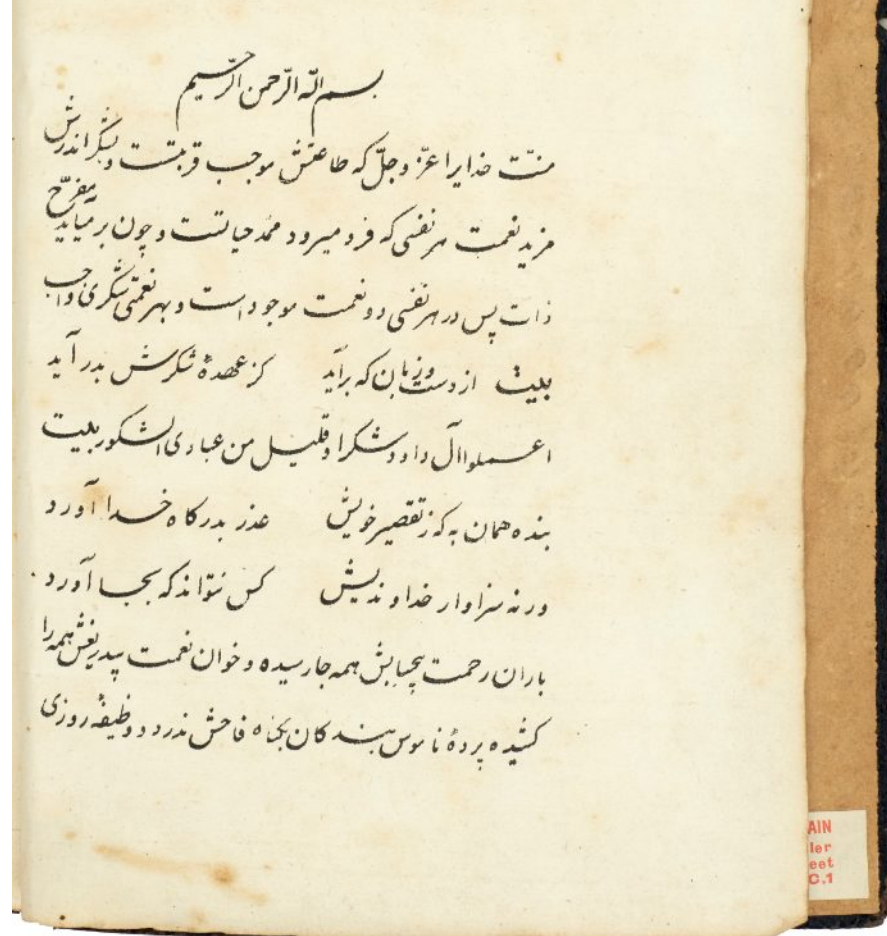 بسم الله الرّحمن الرّحيم
منّت خدایرا عزّ و جلّ که طاعتش موجب قربتست و بشکر اندرش
مزید نعمت هر نفسی که فرو میرود ممد حیاتست و چون بر میآید مفرّح
ذات پس در هر نفسی دو نعمت موجود است و بهر نعمتی شکری واجب
بیت از دست و زبان که برآید کز عهدهٔ شکرش بدر آید
اعملوا آل داود شکرا و قلیل من عبادی الشکور بیت
بنده همان به که ز تقصیر خویش عذر بدرکاه خدا آورد
ورنه سزاوار خداوندیش کس نتواند که بجا آورد
باران رحمت بیحسابش همه جا رسیده و خوان نعمت بیدریغش همه را
کشیده پردهٔ ناموس بندکان بکناه فاحش ندرد و وظیفهٔ روزی
AIN
ler
eet
C.1